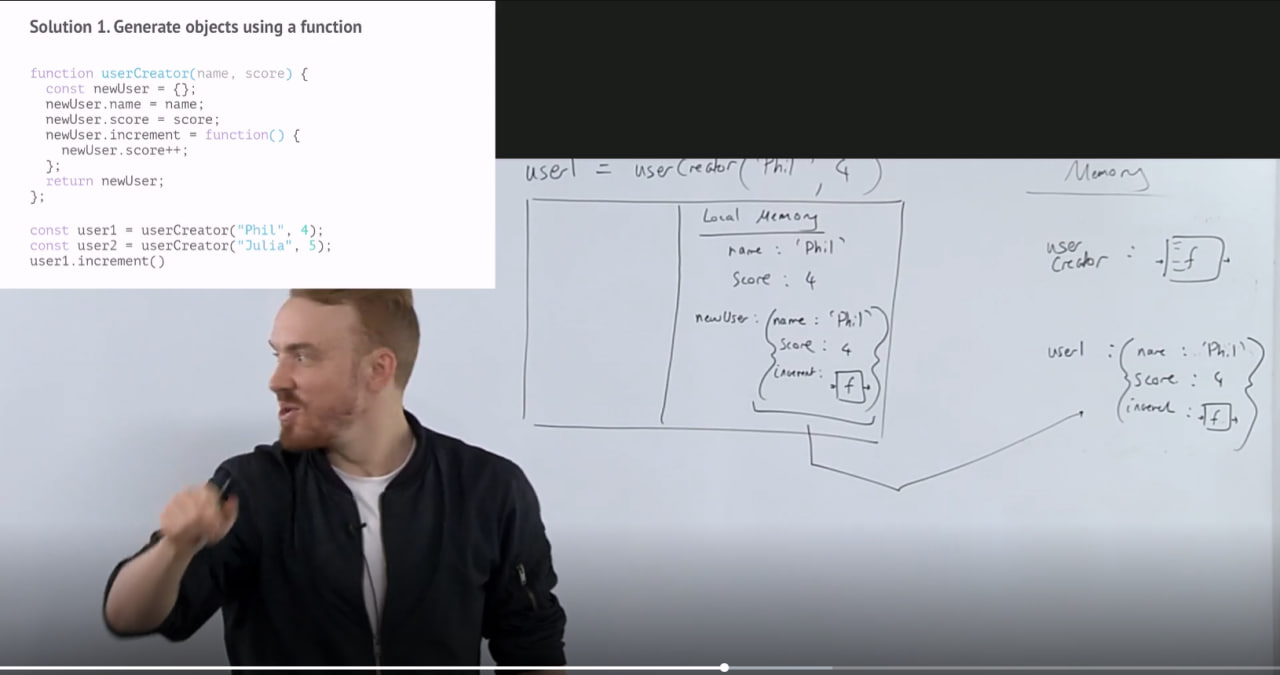 Solution 1. Generate objects using a function
function userCreator(name, score) {
const newUser = {};
newUser.name = name;
newUser.score = score;
newUser.increment = function() {
newUser.score++;
};
return newUser;
};
const user1 = userCreator("Phil", 4);
const user2 = userCreator("Julia", 5);
user1.increment()
user1 = userCreator('Phil', 4)
Local Memory
name : 'Phil'
Score : 4
newUser : { name : 'Phil'
Score : 4
increment :
f
Memory
user
Creator :
f
user1 : { name : 'Phil'
Score : 4
f